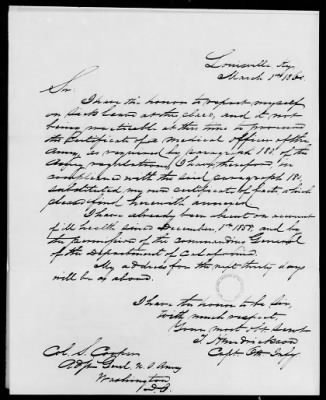 Louisville Ky.
March 1st 1860
Sir
I have the honor to report myself
on Sick Leave at this place, and it not
being practicable at this time to procure
the Certificate of a Medical officer of the
Army as required by paragraph 181 of the
Army regulations, I have, therefore, in
compliance with the said paragraph 181
substituted my own certificate of fact which
please find herewith annexed
I have already been absent on account
of ill health since December 1st 1859, and by
the permission of the commanding General
of the Department of California.
My address for the next thirty days
will be as above.
I have the honor to be Sir,
with much respect,
Your most obt servt
T. Hendrickson
Capt 6th Infy
Col. S. Cooper
Adjt Genl U. S. Army
Washington
D.C.